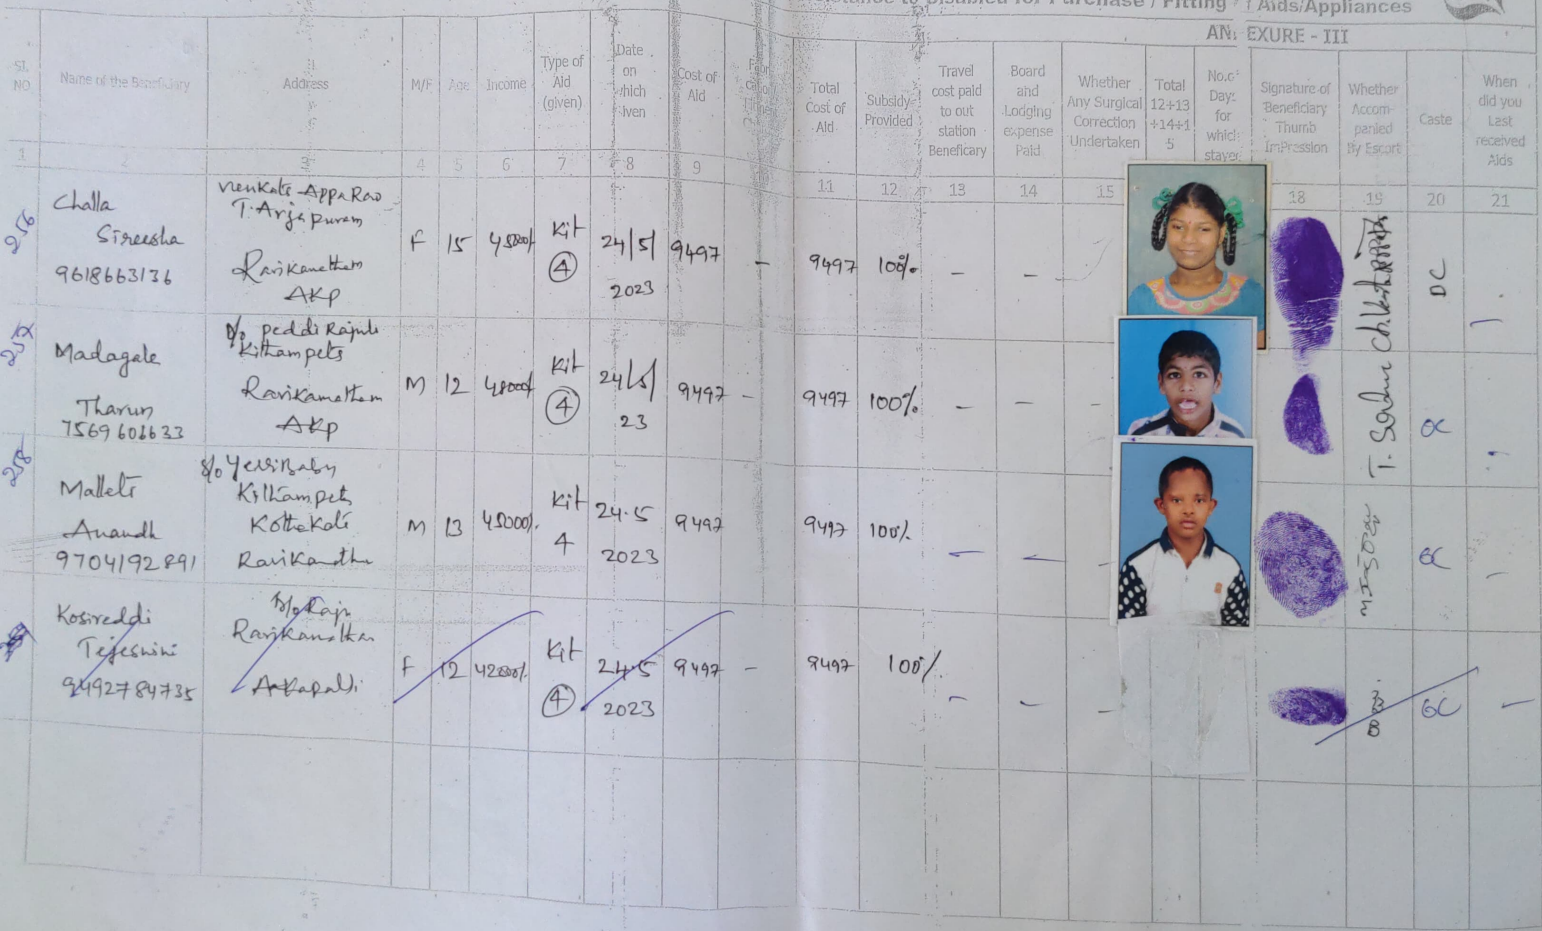 Disabled for Purchase / Fitting / Aids/Appliances
ANEXURE - III
Sl. NO
Name of the Beneficiary
Address
M/F
Age
Income
Type of Aid (given)
Date on which iven
Cost of Aid
Total Cost of Aid
Subsidy Provided
Travel cost paid to out station Beneficary
Board and Lodging expense Paid
Whether Any Surgical Correction Undertaken
Total 12+13+14+15
No.of Days for which stayed
Signature of Beneficiary Thumb ImPression
Whether Accompanied By Escort
Caste
When did you Last received Aids
1 2 3 4 5 6 7 8 9 11 12 13 14 15 18 19 20 21
256
Challa
Sireesha
9618663136
Venkata Appa Rao
T. Arjapuram
Ravikamatham
AKP
F 15 45000/ Kit ④ 24/5/2023 9497 - 9497 100% - -
257
Madagale
Tharun
7569606633
peddi Rajulu
Kithampeta
Ravikamatham
AKP
M 12 48000/ Kit ④ 24/5/23 9497 - 9497 100% - - - OC
258
Malleti
Anandh
9704192891
S/o Yerribabu
Kithampeta
Kothakoti
M 13 45000/. Kit 4 24.5 2023 9497 9497 100% - - -
Kosireddi
Tejesnini
9492784735
D/o Raju
F 12 42000/. Kit ④ 24.5 2023 9497 - 9497 100% - - -